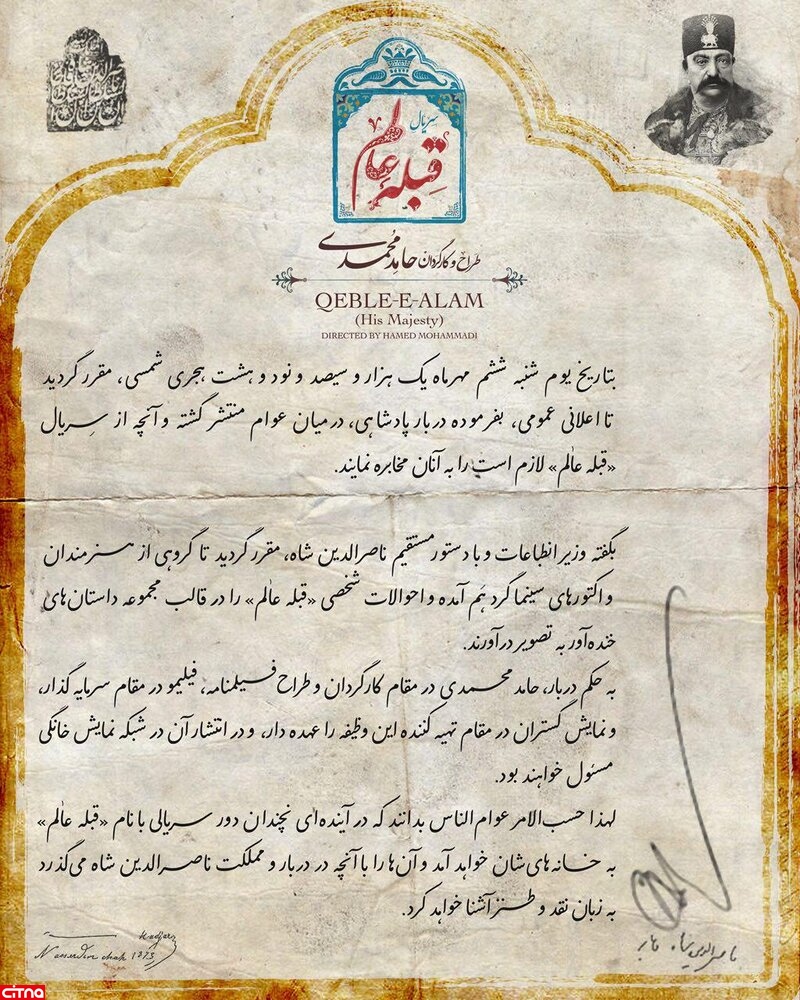 سریال
قبله عالم
طراح و کارگردان حامد محمدی
QEBLE-E-ALAM
(His Majesty)
DIRECTED BY HAMED MOHAMMADI
بتاریخ یوم شنبه ششم مهرماه یک هزار و سیصد و نود و هشت هجری شمسی، مقرر گردید
تا اعلانی عمومی، بفرموده دربار پادشاهی، در میان عوام منتشر گشته و آنچه از سریال
«قبله عالم» لازم است را به آنان مخابره نمایند.
بگفته وزیر انطباعات و با دستور مستقیم ناصرالدین شاه، مقرر گردید تا گروهی از هنرمندان
و اکتورهای سینما گرد هم آمده و احوالات شخصی «قبله عالم» را در قالب مجموعه داستان‌های
خنده‌آور به تصویر درآورند.
به حکم دربار، حامد محمدی در مقام کارگردان و طراح فیلمنامه، فیلیمو در مقام سرمایه گذار،
و نمایش گستران در مقام تهیه کننده این وظیفه را عهده دار، و در انتشار آن در شبکه نمایش خانگی
مسئول خواهند بود.
لهذا حسب‌الامر عوام الناس بدانند که در آینده‌ای نچندان دور سریالی با نام «قبله عالم»
به خانه‌های‌شان خواهد آمد و آن‌ها را با آنچه در دربار و مملکت ناصرالدین شاه می‌گذرد
به زبان نقد و طنز آشنا خواهد کرد.
Kadjar
Nasserdin chah 1873
ناصرالدین شاه
citna